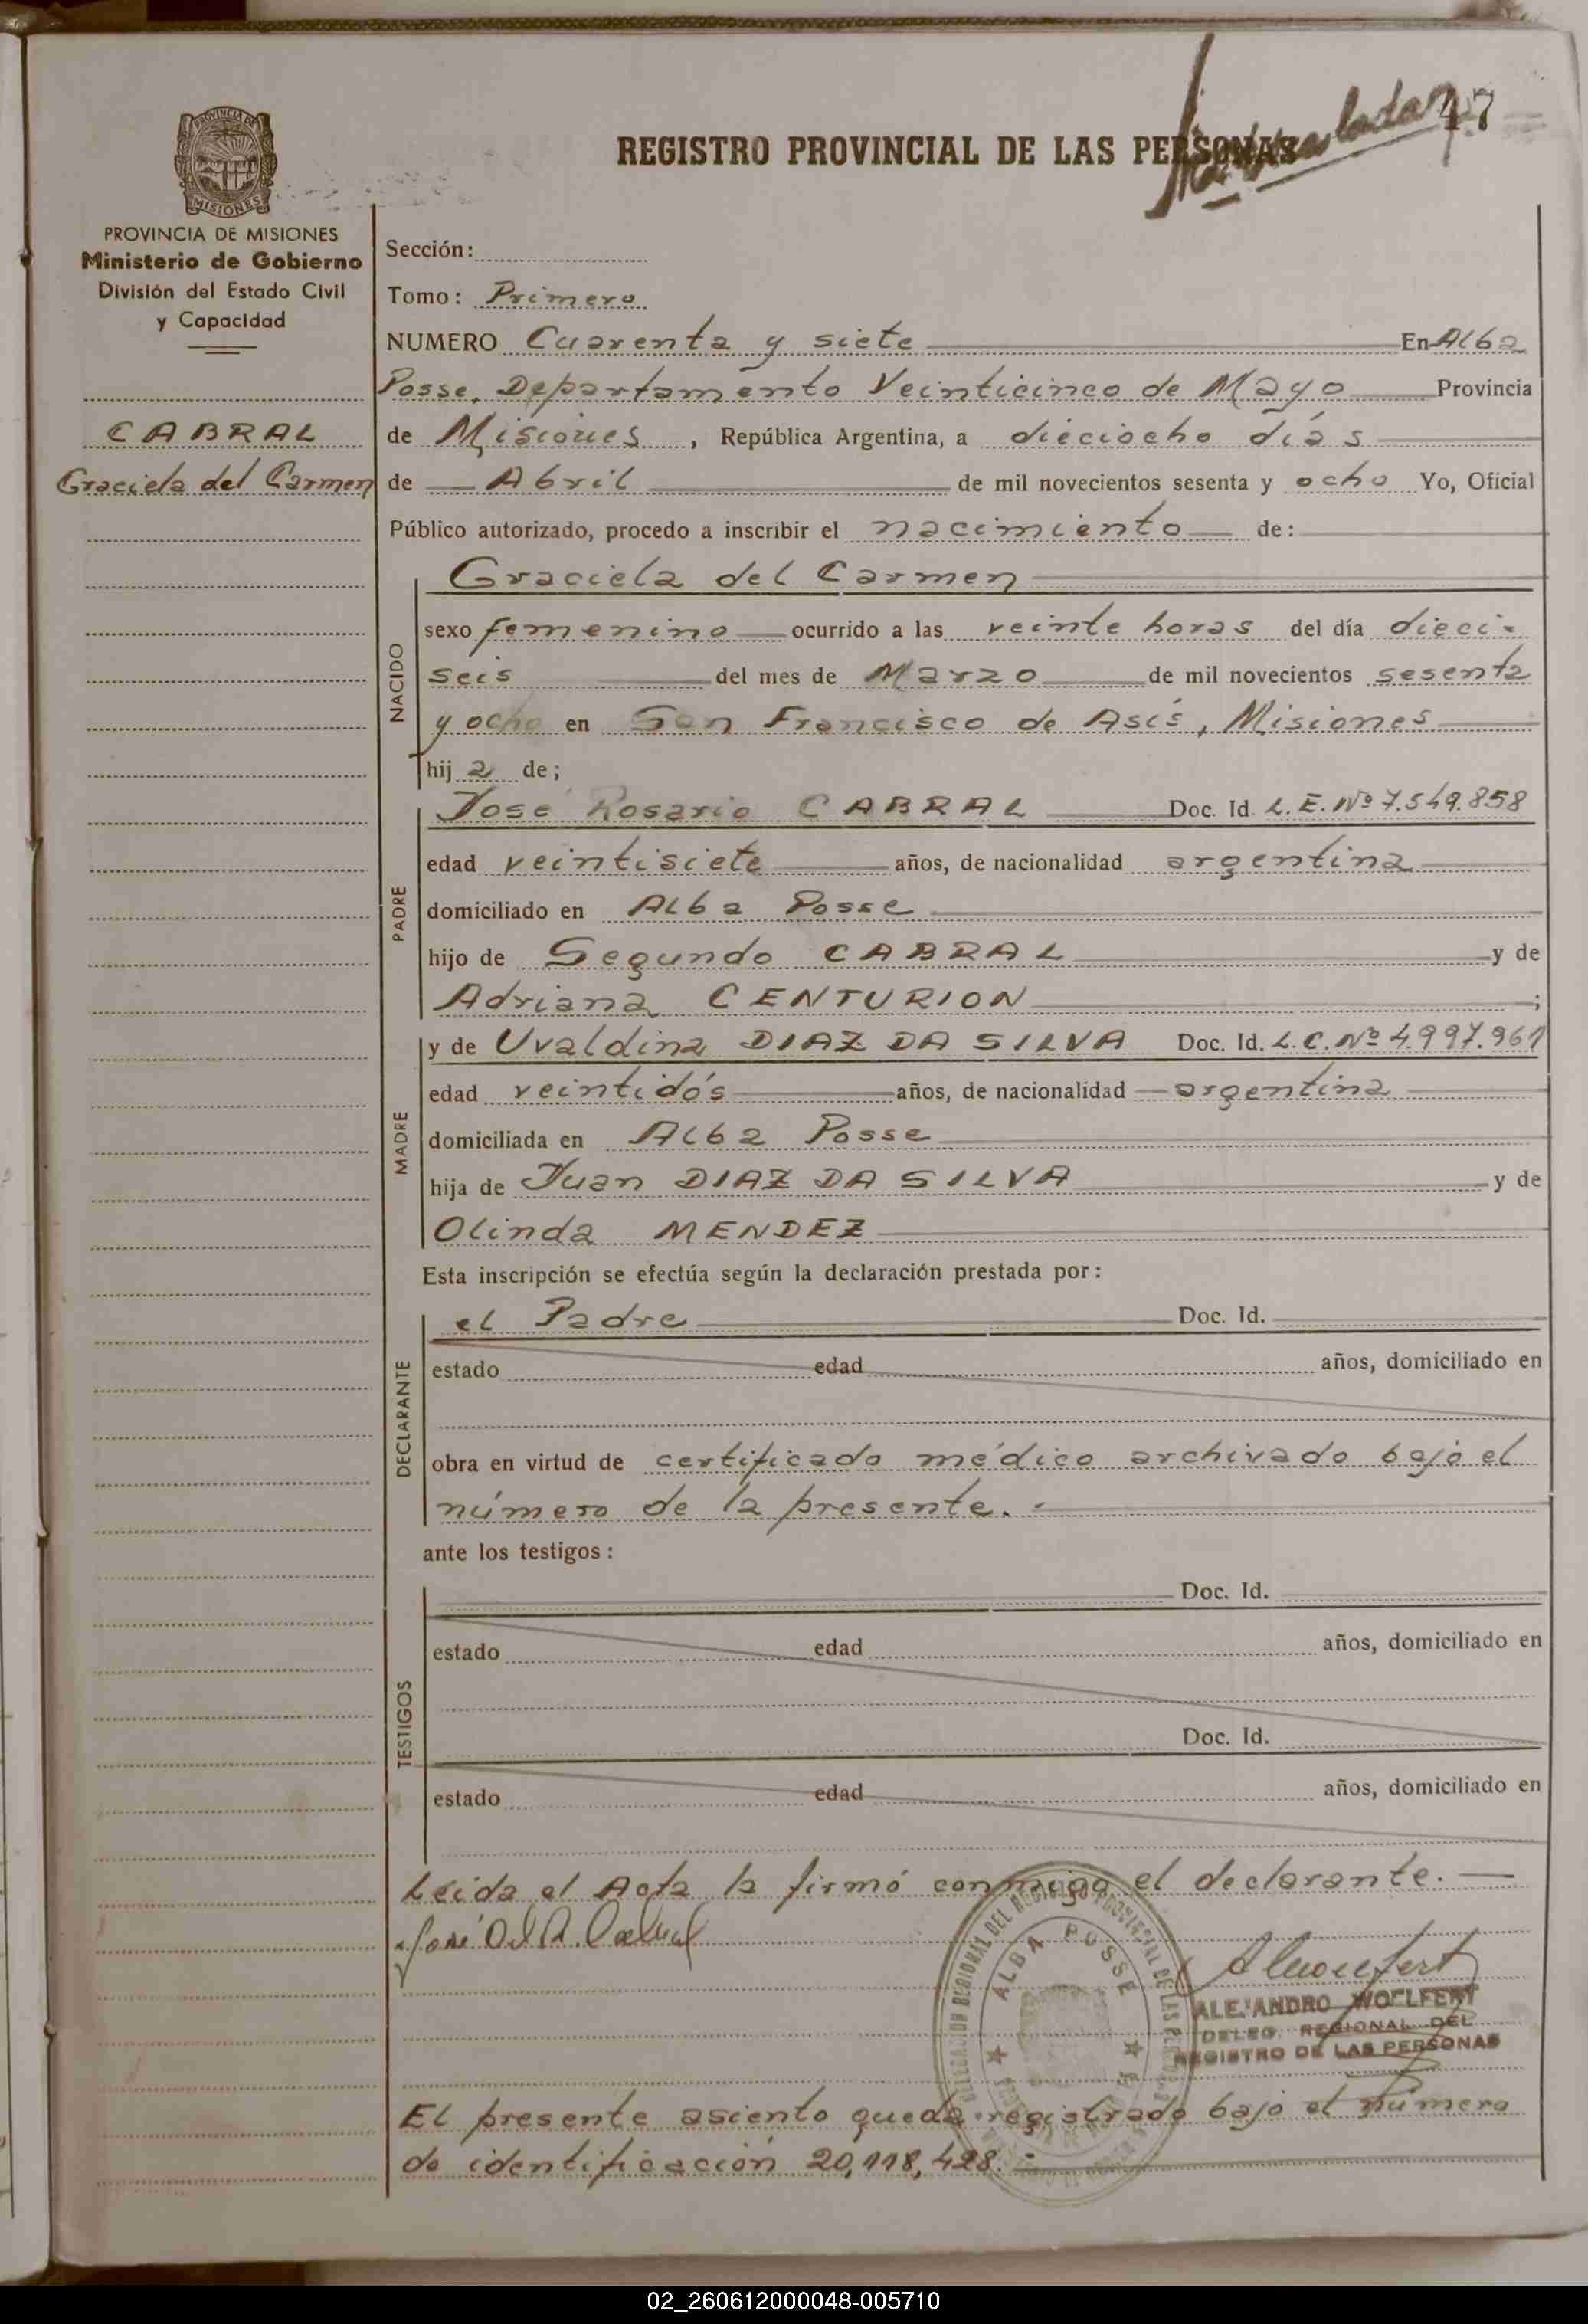 47
REGISTRO PROVINCIAL DE LAS PERSONAS
PROVINCIA DE
MISIONES
PROVINCIA DE MISIONES
Ministerio de Gobierno
División del Estado Civil
y Capacidad
CABRAL
Graciela del Carmen
Sección:
Tomo: Primero
NUMERO Cuarenta y siete En Alba
Posse, Departamento Veinticinco de Mayo Provincia
de Misiones, República Argentina, a dieciocho días
de Abril de mil novecientos sesenta y ocho Yo, Oficial
Público autorizado, procedo a inscribir el nacimiento de:
NACIDO
Graciela del Carmen
sexo femenino ocurrido a las veinte horas del día dieci-
seis del mes de Marzo de mil novecientos sesenta
y ocho en San Francisco de Asís, Misiones
hij a de;
PADRE
José Rosario CABRAL Doc. Id. L.E. Nº 7.549.858
edad veintisiete años, de nacionalidad argentina
domiciliado en Alba Posse
hijo de Segundo CABRAL y de
Adriana CENTURION ;
MADRE
y de Uvaldina DIAZ DA SILVA Doc. Id. L.C. Nº 4.997.961
edad veintidós años, de nacionalidad argentina
domiciliada en Alba Posse
hija de Juan DIAZ DA SILVA y de
Olinda MENDEZ
Esta inscripción se efectúa según la declaración prestada por:
DECLARANTE
el Padre Doc. Id.
estado edad años, domiciliado en
obra en virtud de certificado médico archivado bajo el
número de la presente.-
ante los testigos:
TESTIGOS
Doc. Id.
estado edad años, domiciliado en
Doc. Id.
estado edad años, domiciliado en
Leída el Acta la firmó conmigo el declarante.-
ALBA POSSE
ALEJANDRO WOELFERT
DELEG. REGIONAL DEL
REGISTRO DE LAS PERSONAS
El presente asiento queda registrado bajo el número
de identificación 20,118,428.-
02_260612000048-005710